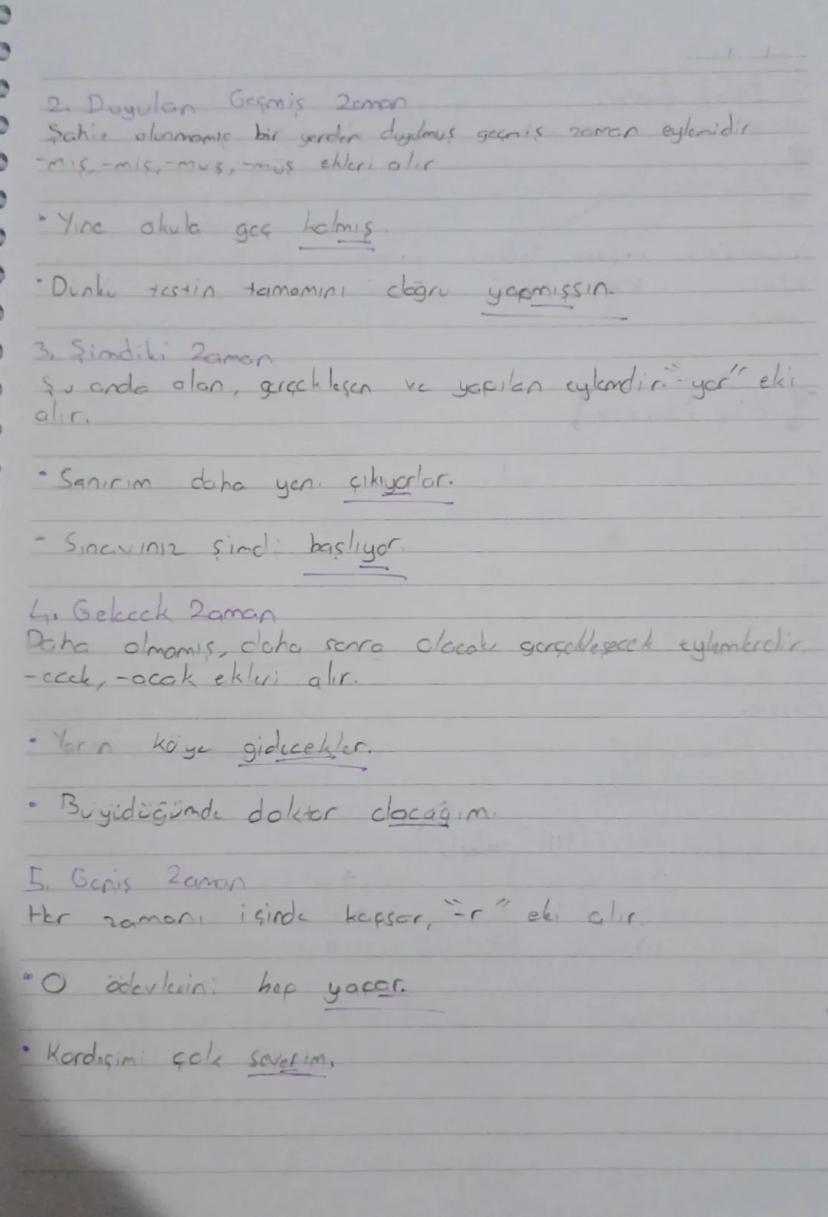 2. Duyulan Geçmiş Zaman
Şahit olunmamış bir yerden duyulmuş geçmiş zaman eylemidir
-mış, -miş, -muş, -müş ekleri alır
• Yine okula geç kalmış
• Dünkü testin tamamını doğru yapmışsın.
3. Şimdiki Zaman
Şu anda olan, gerçekleşen ve yapılan eylemdir. "-yor" eki
alır.
• Sanırım daha yeni çıkıyorlar.
- Sınavınız şimdi başlıyor.
4. Gelecek Zaman
Daha olmamış, daha sonra olacak gerçekleşecek eylemlerdir
-ecek, -acak ekleri alır.
• Yarın köye gidecekler.
• Büyüdüğümde doktor olacağım.
5. Geniş Zaman
Her zamanı içinde kapsar, "-r" eki alır
• O ödevlerini hep yapar.
• Kardeşimi çok severim.